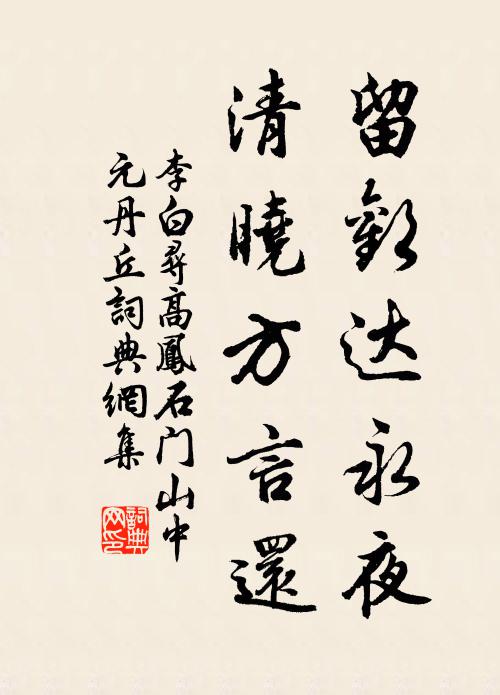 留歡达永夜
清曉方言還
李白尋高鳳石门山中
元丹丘詞典網集
詞典网印